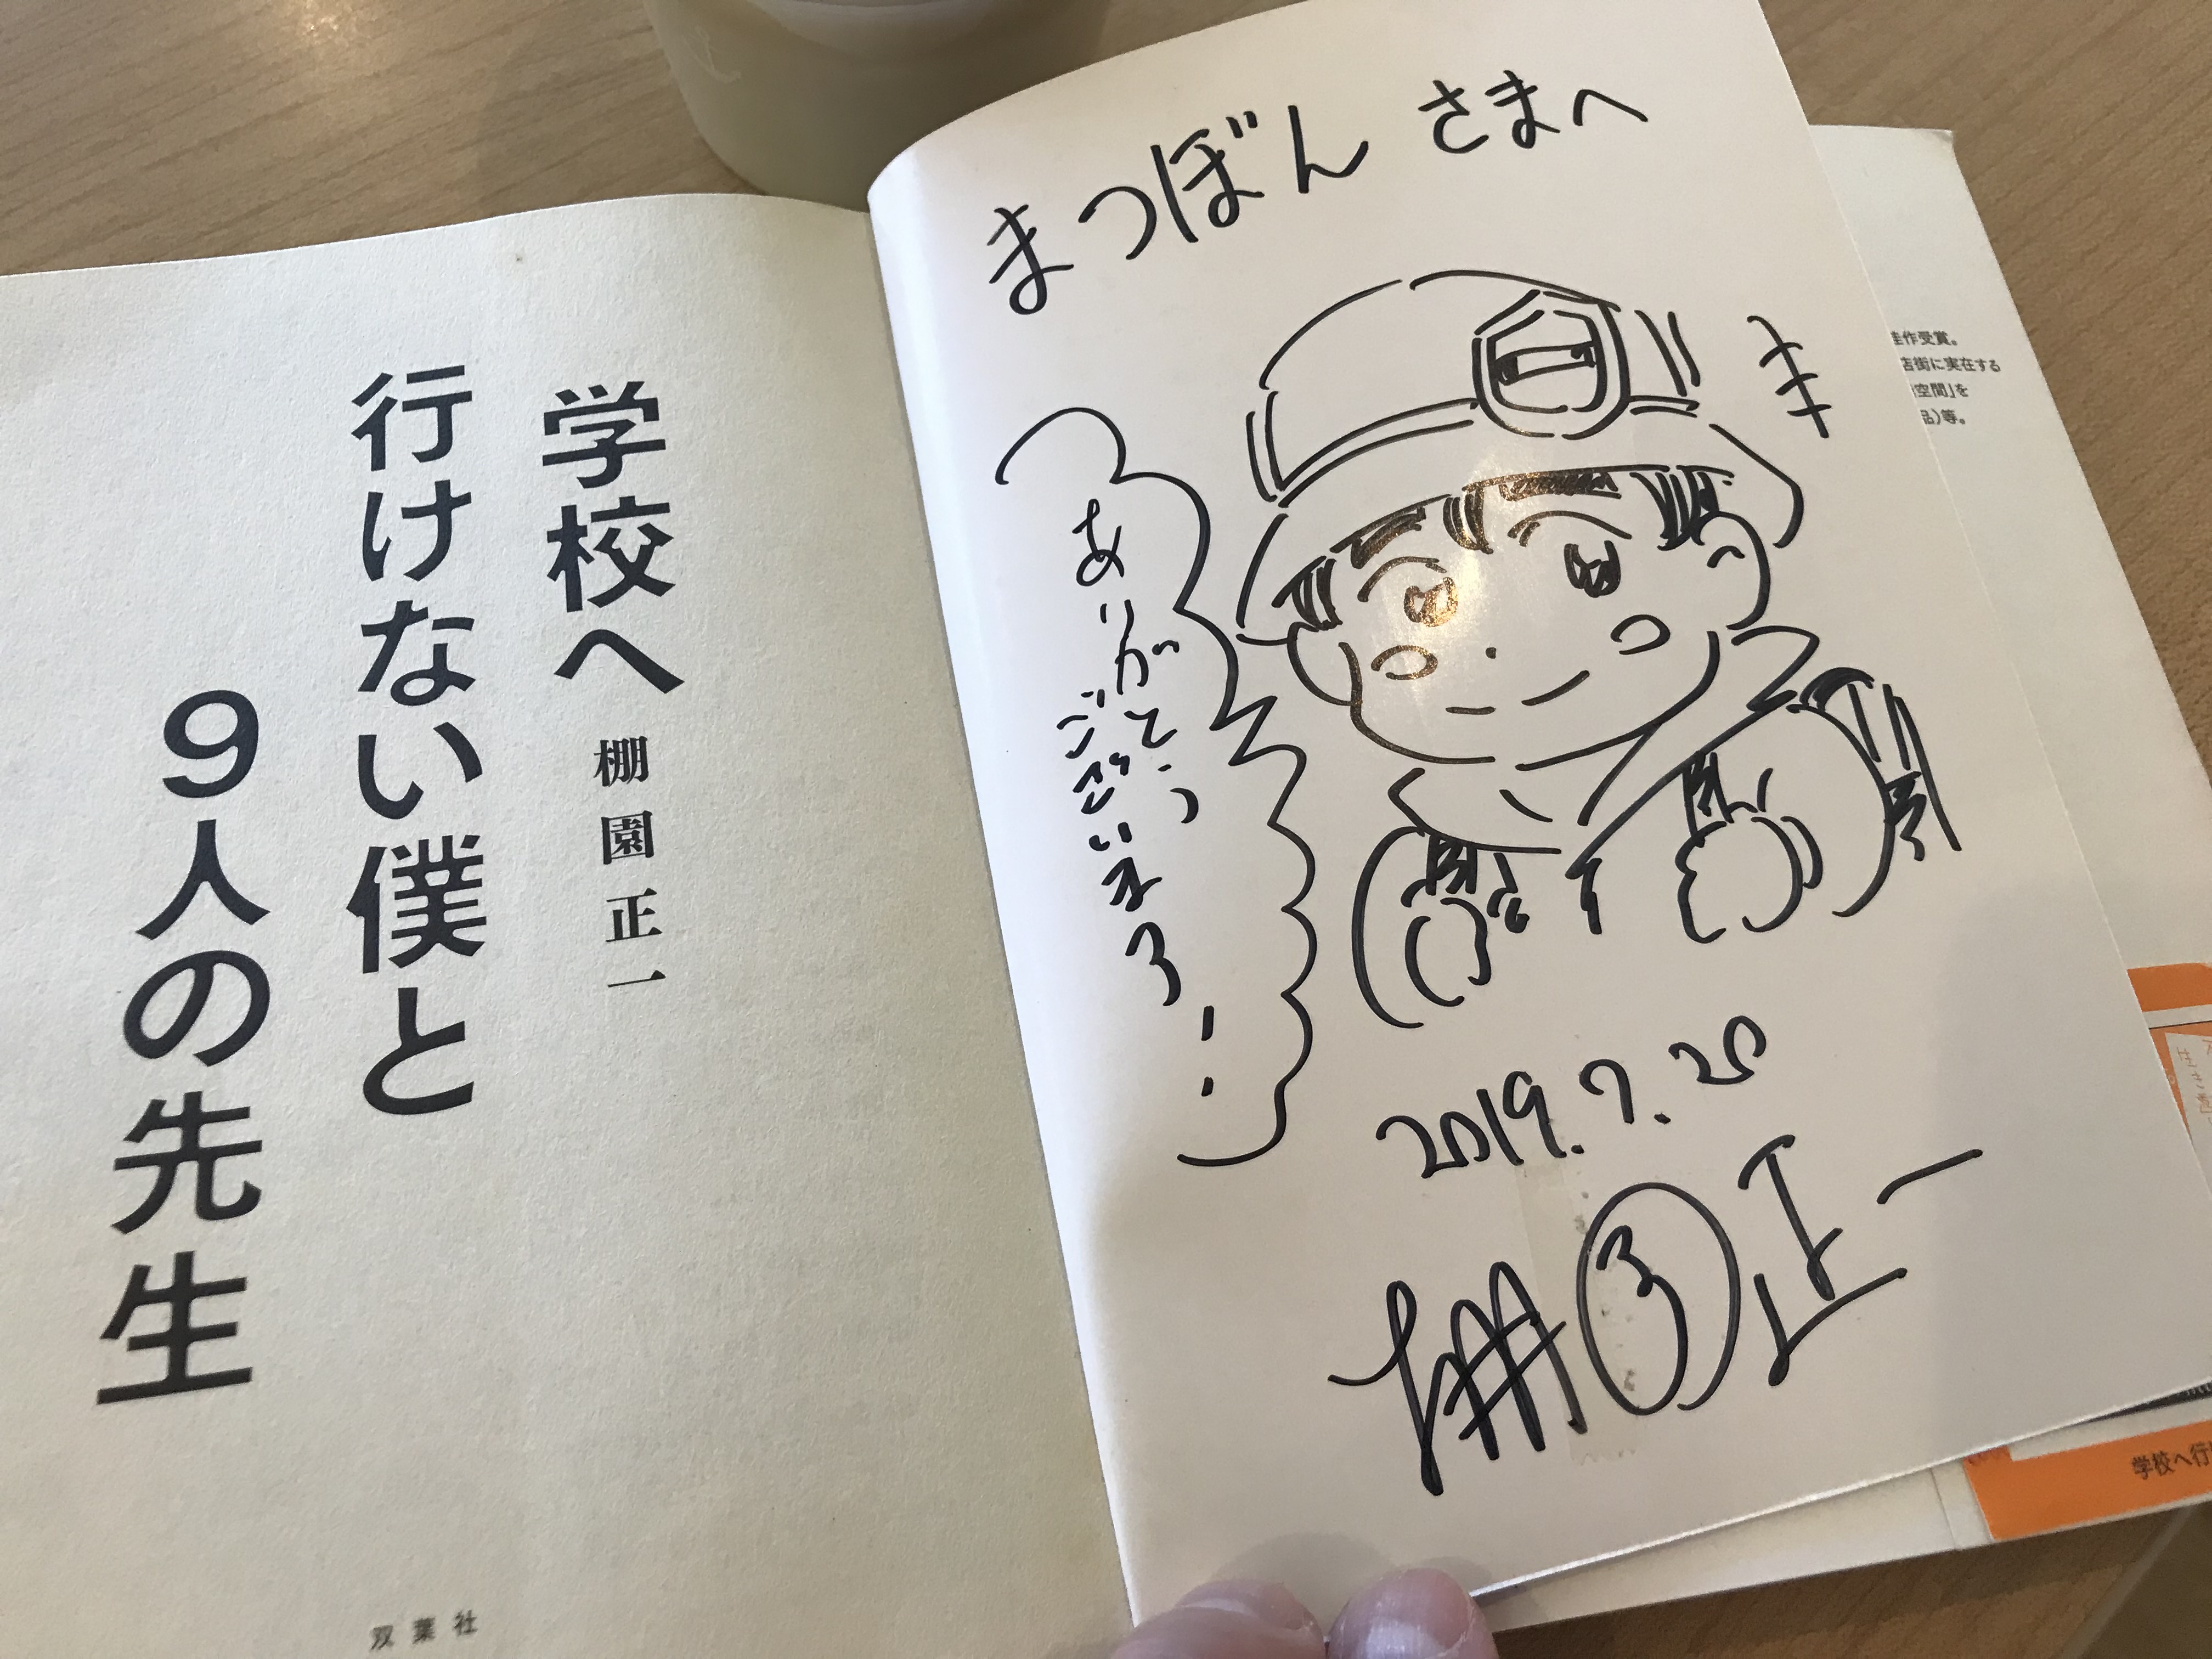 学校へ
行けない僕と
9人の先生
棚園正一
双葉社
まつぼん さまへ
ありがとう
ございます!!
2019.7.20
棚園正一
佳作受賞。
店街に実在する
空間」を
品)等。
学校へ行